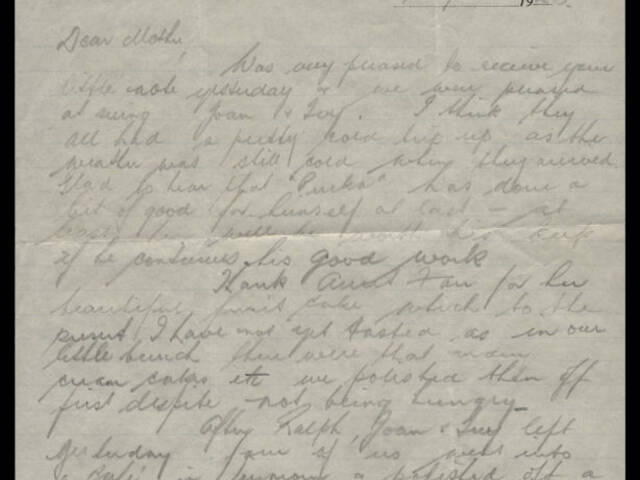 19
Dear Mother,
Was very pleased to receive your
little note yesterday & we were pleased
at seeing Joan & Ivy. I think they
all had a pretty cold trip up as the
weather was still cold when they arrived.
Glad to hear that "Purka" has done a
bit of good for himself at last - at
least he will be worth his keep
if he continues his good work
Thank Aunt Fan for her
beautiful fruit cake which to the
present I have not yet tasted as in our
little bunch there were that many
cream cakes etc we polished them off
first despite not being hungry
After Ralph, Joan & Ivy left
yesterday four of us went into
a café in & polished off a